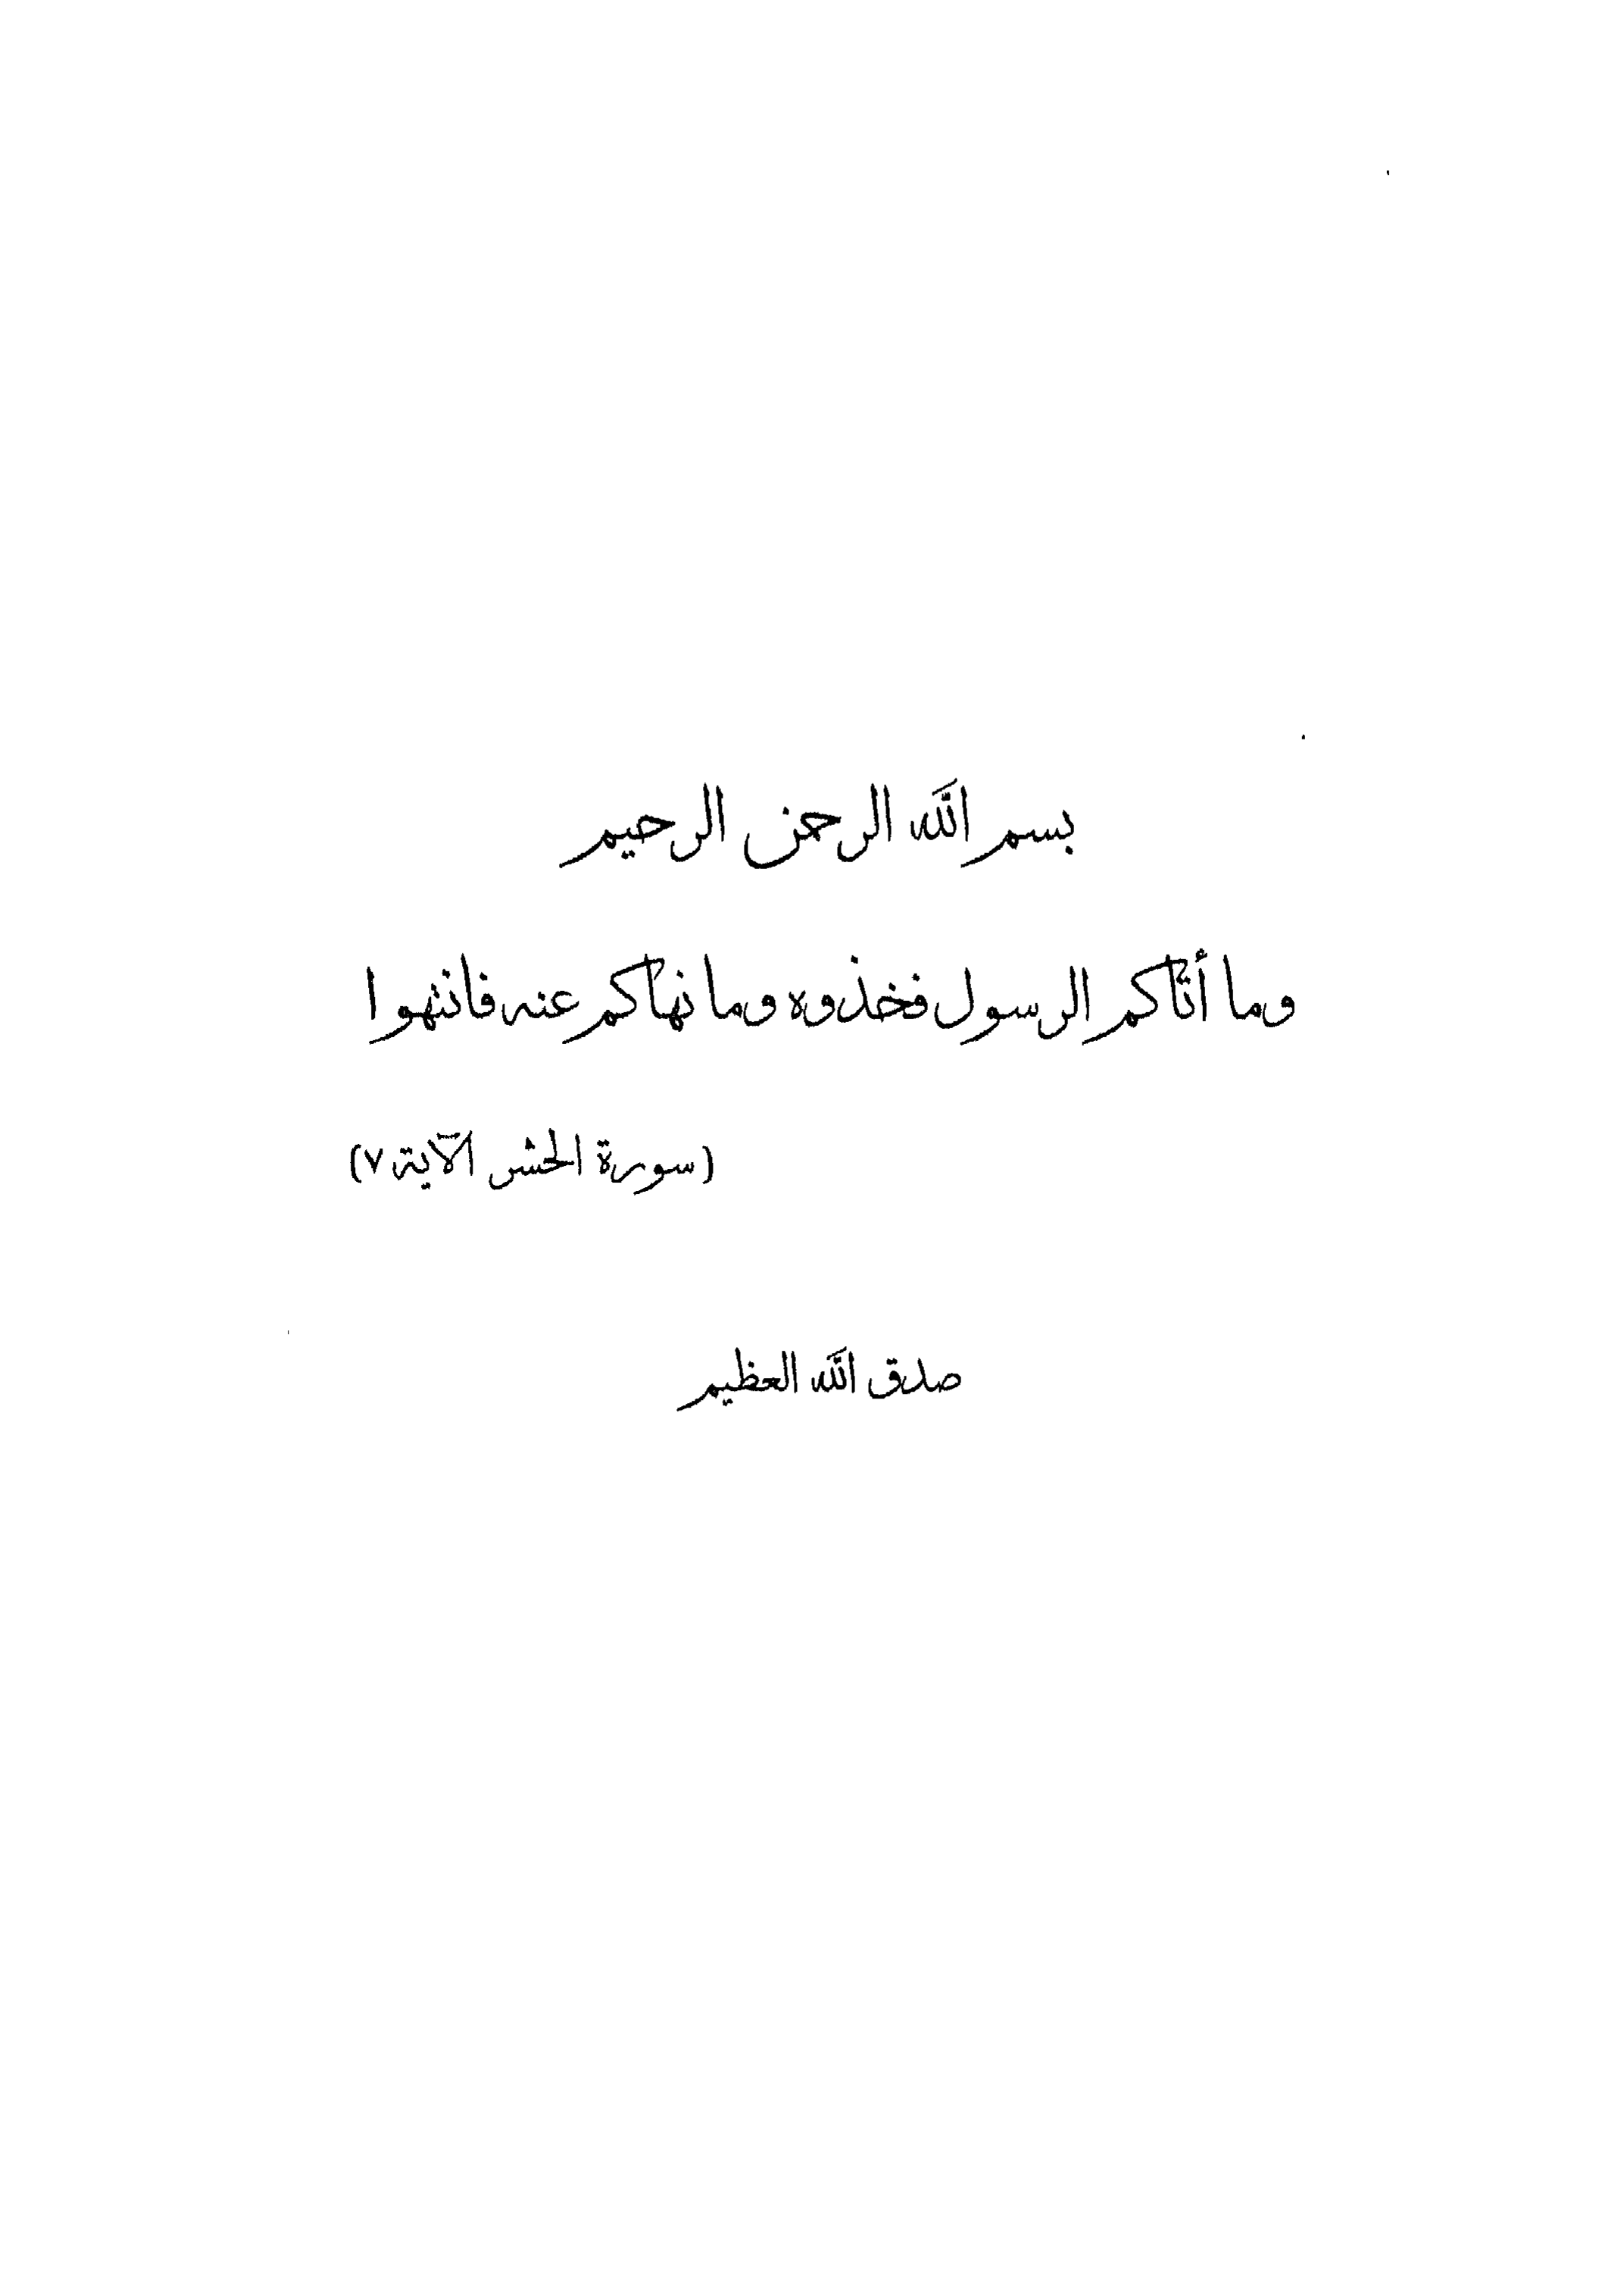 بسم الله الرحمن الرحيم
وما أتاكم الرسول فخذوه وما نهاكم عنه فانتهوا
(سورة الحشر الآية ٧)
صدق الله العظيم